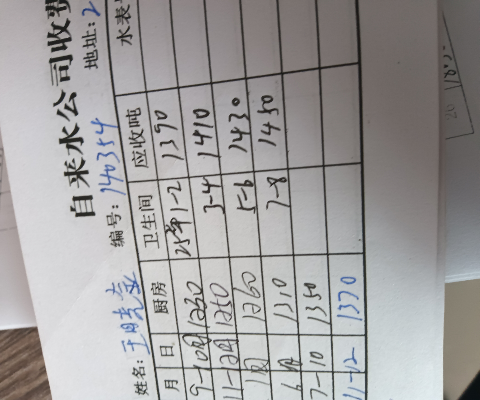 自来水公司收费
姓名: 王晓 编号: 140354 地址: 2
月 日 厨房 卫生间 应收吨 水表
9-10月 1230 25年1-2 1390
11-12月 1250 3-4 1410
1260 5-6 1430
1310 7-8 1450
7-10 1350
11-12 1370